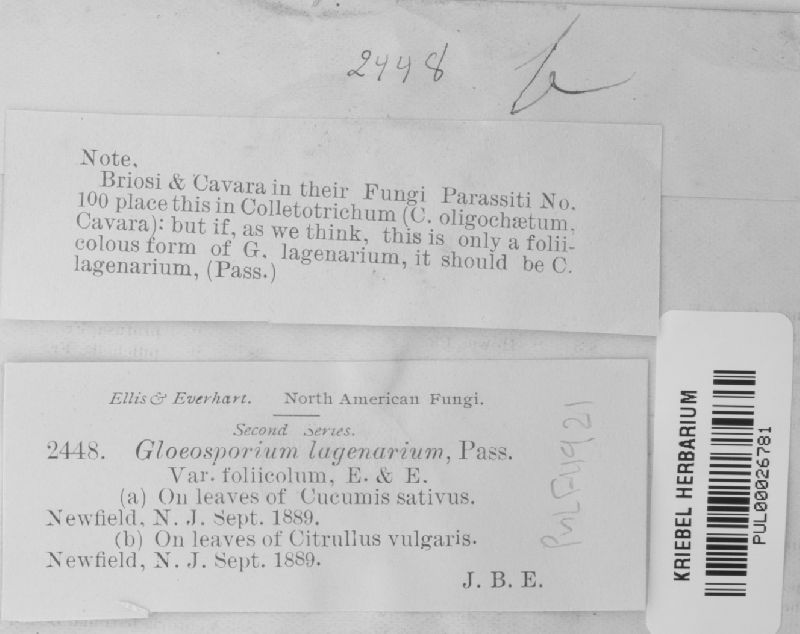 2448
Note.
Briosi & Cavara in their Fungi Parassiti No.
100 place this in Colletotrichum (C. oligochætum,
Cavara): but if, as we think, this is only a folii-
colous form of G. lagenarium, it should be C.
lagenarium, (Pass.)
Ellis & Everhart. North American Fungi.
Second Series.
2448. Gloeosporium lagenarium, Pass.
Var. foliicolum, E. & E.
(a) On leaves of Cucumis sativus.
Newfield, N. J. Sept. 1889.
(b) On leaves of Citrullus vulgaris.
Newfield, N. J. Sept. 1889.
J. B. E.
PULF4921
KRIEBEL HERBARIUM
PUL00026781